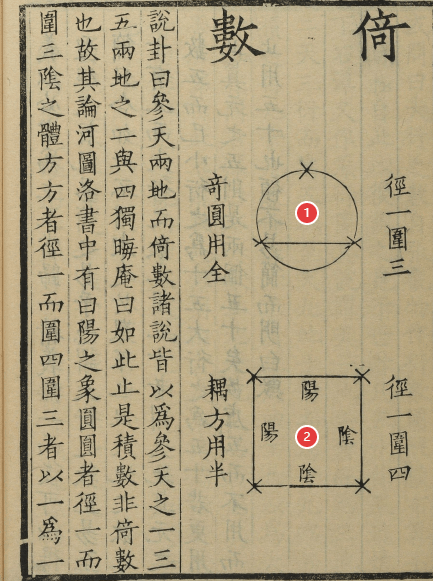 倚數
徑一圍三
1
奇圓用全
徑一圍四
陽
陽
2
陰
陰
耦方用半
說卦曰參天兩地而倚數諸說皆以爲參天之一三
五兩地之二與四獨晦庵曰如此止是積數非倚數
也故其論河圖洛書中有曰陽之象圓圓者徑一而
圍三陰之體方方者徑一而圍四圍三者以一爲一